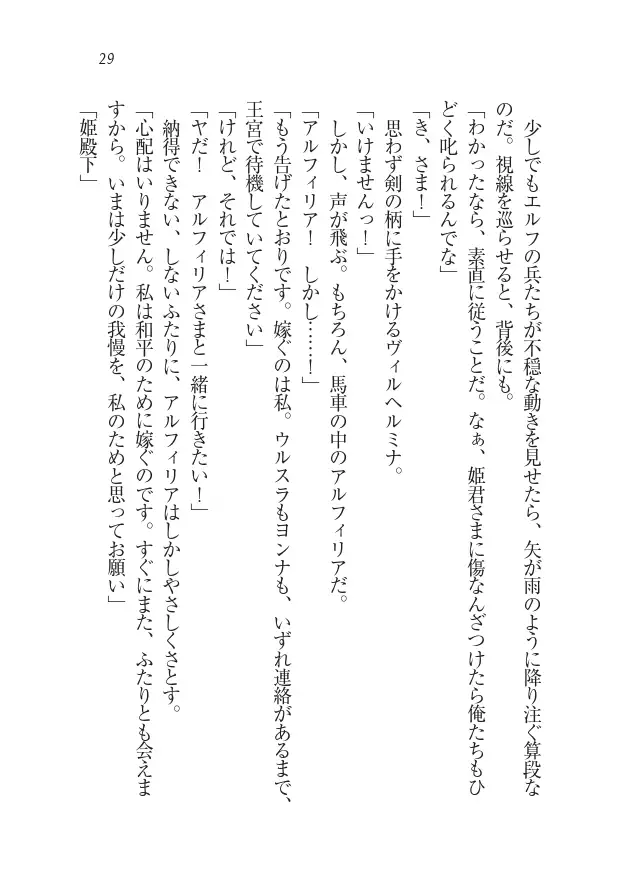 29
　少しでもエルフの兵たちが不穏な動きを見せたら、矢が雨のように降り注ぐ算段な
のだ。視線を巡らせると、背後にも。
「わかったなら、素直に従うことだ。なぁ、姫君さまに傷なんざつけたら俺たちもひ
どく叱られるんでな」
「き、さま！」
　思わず剣の柄に手をかけるヴィルヘルミナ。
「いけませんっ！」
　しかし、声が飛ぶ。もちろん、馬車の中のアルフィリアだ。
「アルフィリア！　しかし……！」
「もう告げたとおりです。嫁ぐのは私。ウルスラもヨンナも、いずれ連絡があるまで、
王宮で待機していてください」
「けれど、それでは！」
「ヤだ！　アルフィリアさまと一緒に行きたい！」
　納得できない、しないふたりに、アルフィリアはしかしやさしくさとす。
「心配はいりません。私は和平のために嫁ぐのです。すぐにまた、ふたりとも会えま
すから。いまは少しだけの我慢を、私のためと思ってお願い」
「姫殿下」